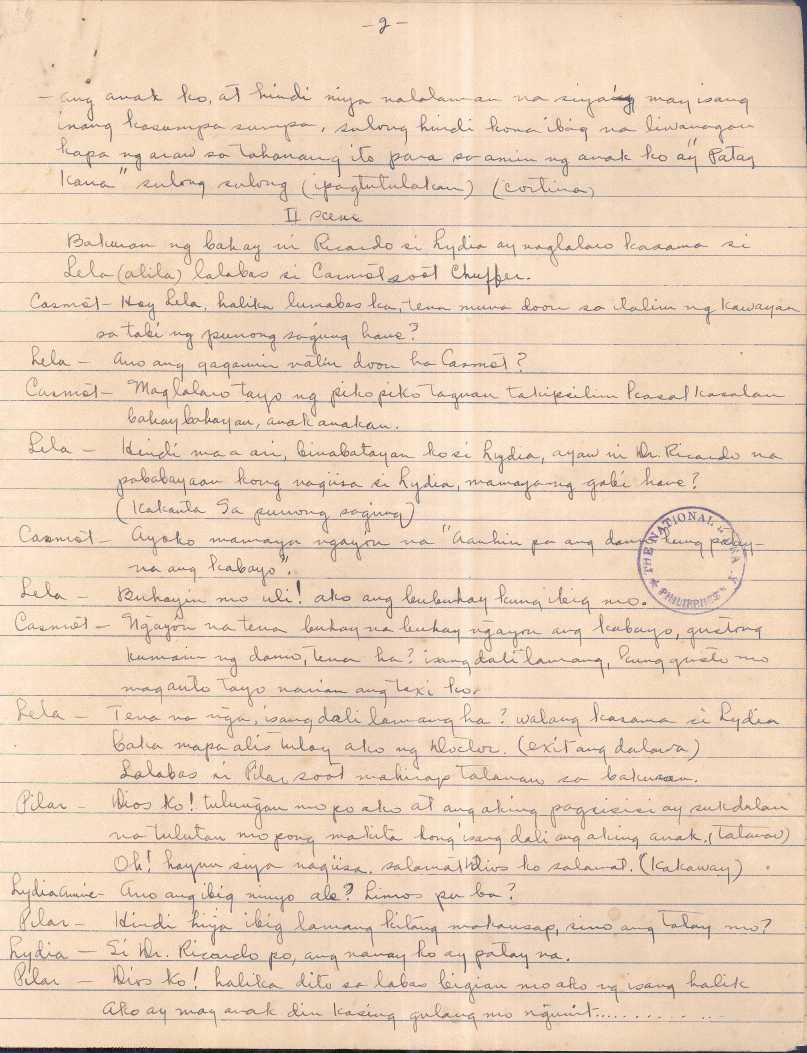 -2-
- ang anak ko, at hindi niya nalalaman na siya'y may isang
inang kasumpa sumpa, sulong hindi kona ibig na liwanagan
kapa ng araw sa tahanang ito para sa amin ng anak ko ay "Patay
kana" sulong sulong (ipagtutulakan) (cortina)
II scene
Bakuran ng bahay ni Ricardo si Lydia ay naglalaro kasama si
Lela (alila) lalabas si Casmót soót Chuffer.
Casmót - Hoy Lela, halika lumabas ka, tena muna doon sa ilalim ng kawayan
sa tabi ng punong saguing hane?
Lela - Ano ang gagawin natin doon ha Casmót?
Casmót - Maglalaro tayo ng pikopiko taguan takipsilim kasal kasalan
bahaybahayan, anak anakan.
Lela - Hindi ma a ari, binabatayan ko si Lydia, ayaw ni Dr. Ricardo na
pababayaan kong nagiisa si Lydia, mamayang gabi hane?
(Kakanta Sa punong saguing)
Casmót - Ayoko mamaya ngayon na "Aanhin pa ang damo kung patay-
na ang kabayo".
Lela - Buhayin mo uli! ako ang bubuhay kung ibig mo.
Casmót - Ngayon na tena buhay na buhay ngayon ang kabayo, gustong
kumain ng damo, tena ha? isang dali lamang, kung gusto mo
magauto tayo narian ang taxi ko.
Lela - Tena na nga, isang dali lamang ha? walang kasama si Lydia
baka mapa alis tuloy ako ng Doctor. (exit ang dalawa)
Lalabas si Pilar, soót mahirap tatanaw sa bakuran.
Pilar - Dios ko! tulungan mo po ako at ang aking pagsisisi ay sukdulan
na tulutan mo pong makita kong isang dali ang aking anak, (tatanaw)
Oh! hayun siya nagiisa. salamat Dios ko salamat. (Kakaway)
Lydia Annie - Ano ang ibig ninyo ale? Limos po ba?
Pilar - Hindi hija ibig lamang kitang makausap, sino ang tatay mo?
Lydia - Si Dr. Ricardo po, ang nanay ko ay patay na.
Pilar - Dios ko! halika dito sa labas bigian mo ako ng isang halik
Ako ay may anak din kasing gulang mo nguni't..........
THE NATIONAL
PHILIPPINES